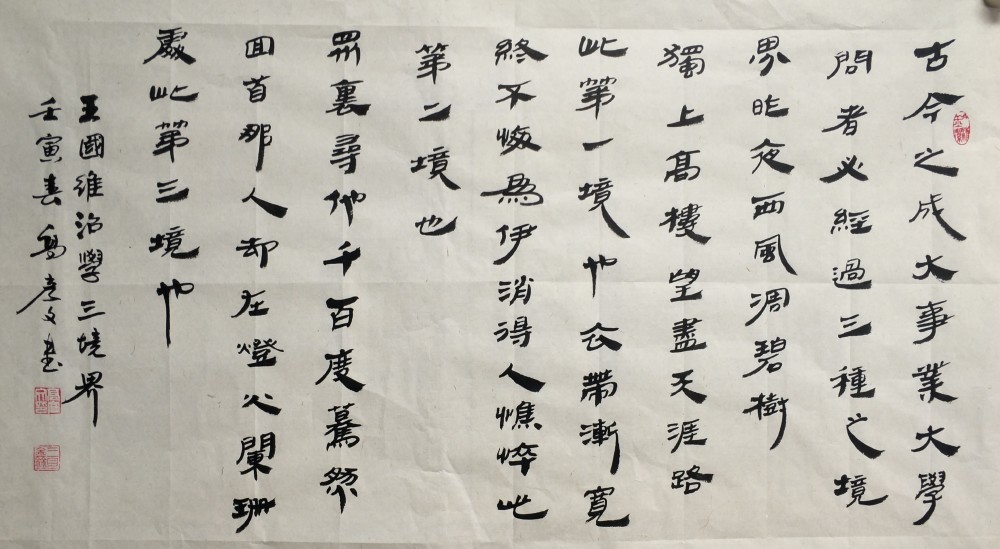 古今之成大事業大學
問者必經過三種之境
界昨夜西風凋碧樹
獨上高樓望盡天涯路
此第一境也衣帶漸寬
終不悔爲伊消得人憔悴此
第二境也
眾裏尋他千百度驀然
回首那人却在燈火闌珊
處此第三境也
王國維治學三境界
壬寅春文書